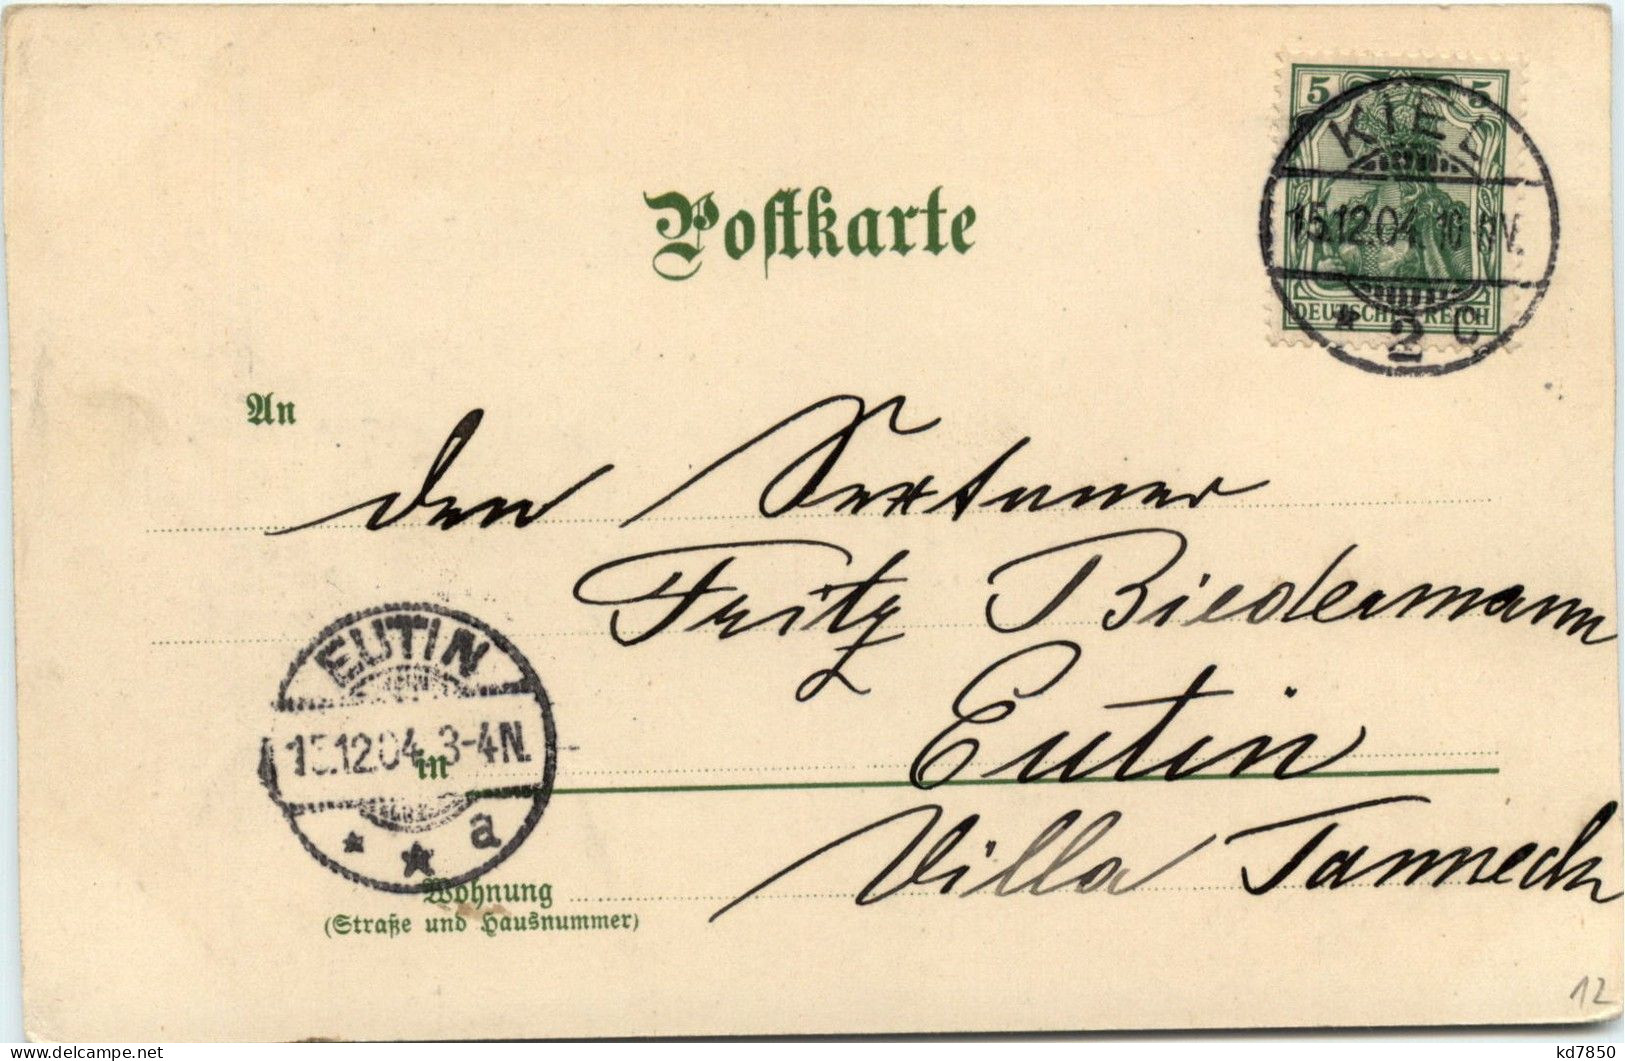 5 5
DEUTSCHES REICH
KIEL
15.12.04. 10-11V.
* 2 c
Postkarte
An
den Sextaner
Fritz Biedermann
EUTIN
15.12.04. 3-4N.
* * a
in Eutin
Wohnung Villa Tanneck
(Straße und Hausnummer)
12
kd7850
www.delcampe.net